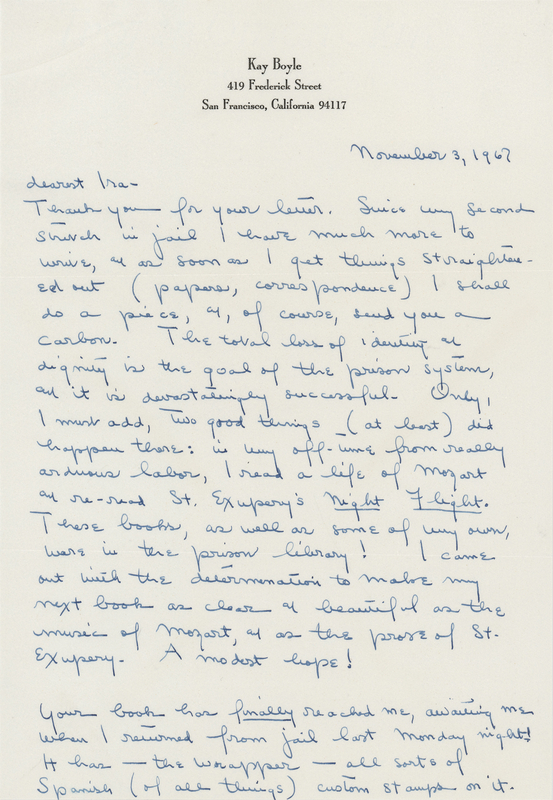 Kay Boyle
419 Frederick Street
San Francisco, California 94117
November 3, 1967
dearest Ira -
Thank you for your letter. Since my second
stretch in jail I have much more to
write, & as soon as I get things straighten-
ed out (papers, correspondence) I shall
do a piece, &, of course, send you a
carbon. The total loss of identity &
dignity is the goal of the prison system,
& it is devastatingly successful. Only,
I must add, two good things (at least) did
happen there: in my off-time from really
arduous labor, I read a life of Mozart
& re-read St. Exupery's Night Flight.
These books, as well as some of my own,
were in the prison library! I came
out with the determination to make my
next book as clear & beautiful as the
music of Mozart, & as the prose of St.
Exupery. A modest hope!
Your book has finally reached me, awaiting me
when I returned from jail last Monday night!
It has — the wrapper — all sorts of
Spanish (of all things) custom stamps on it.